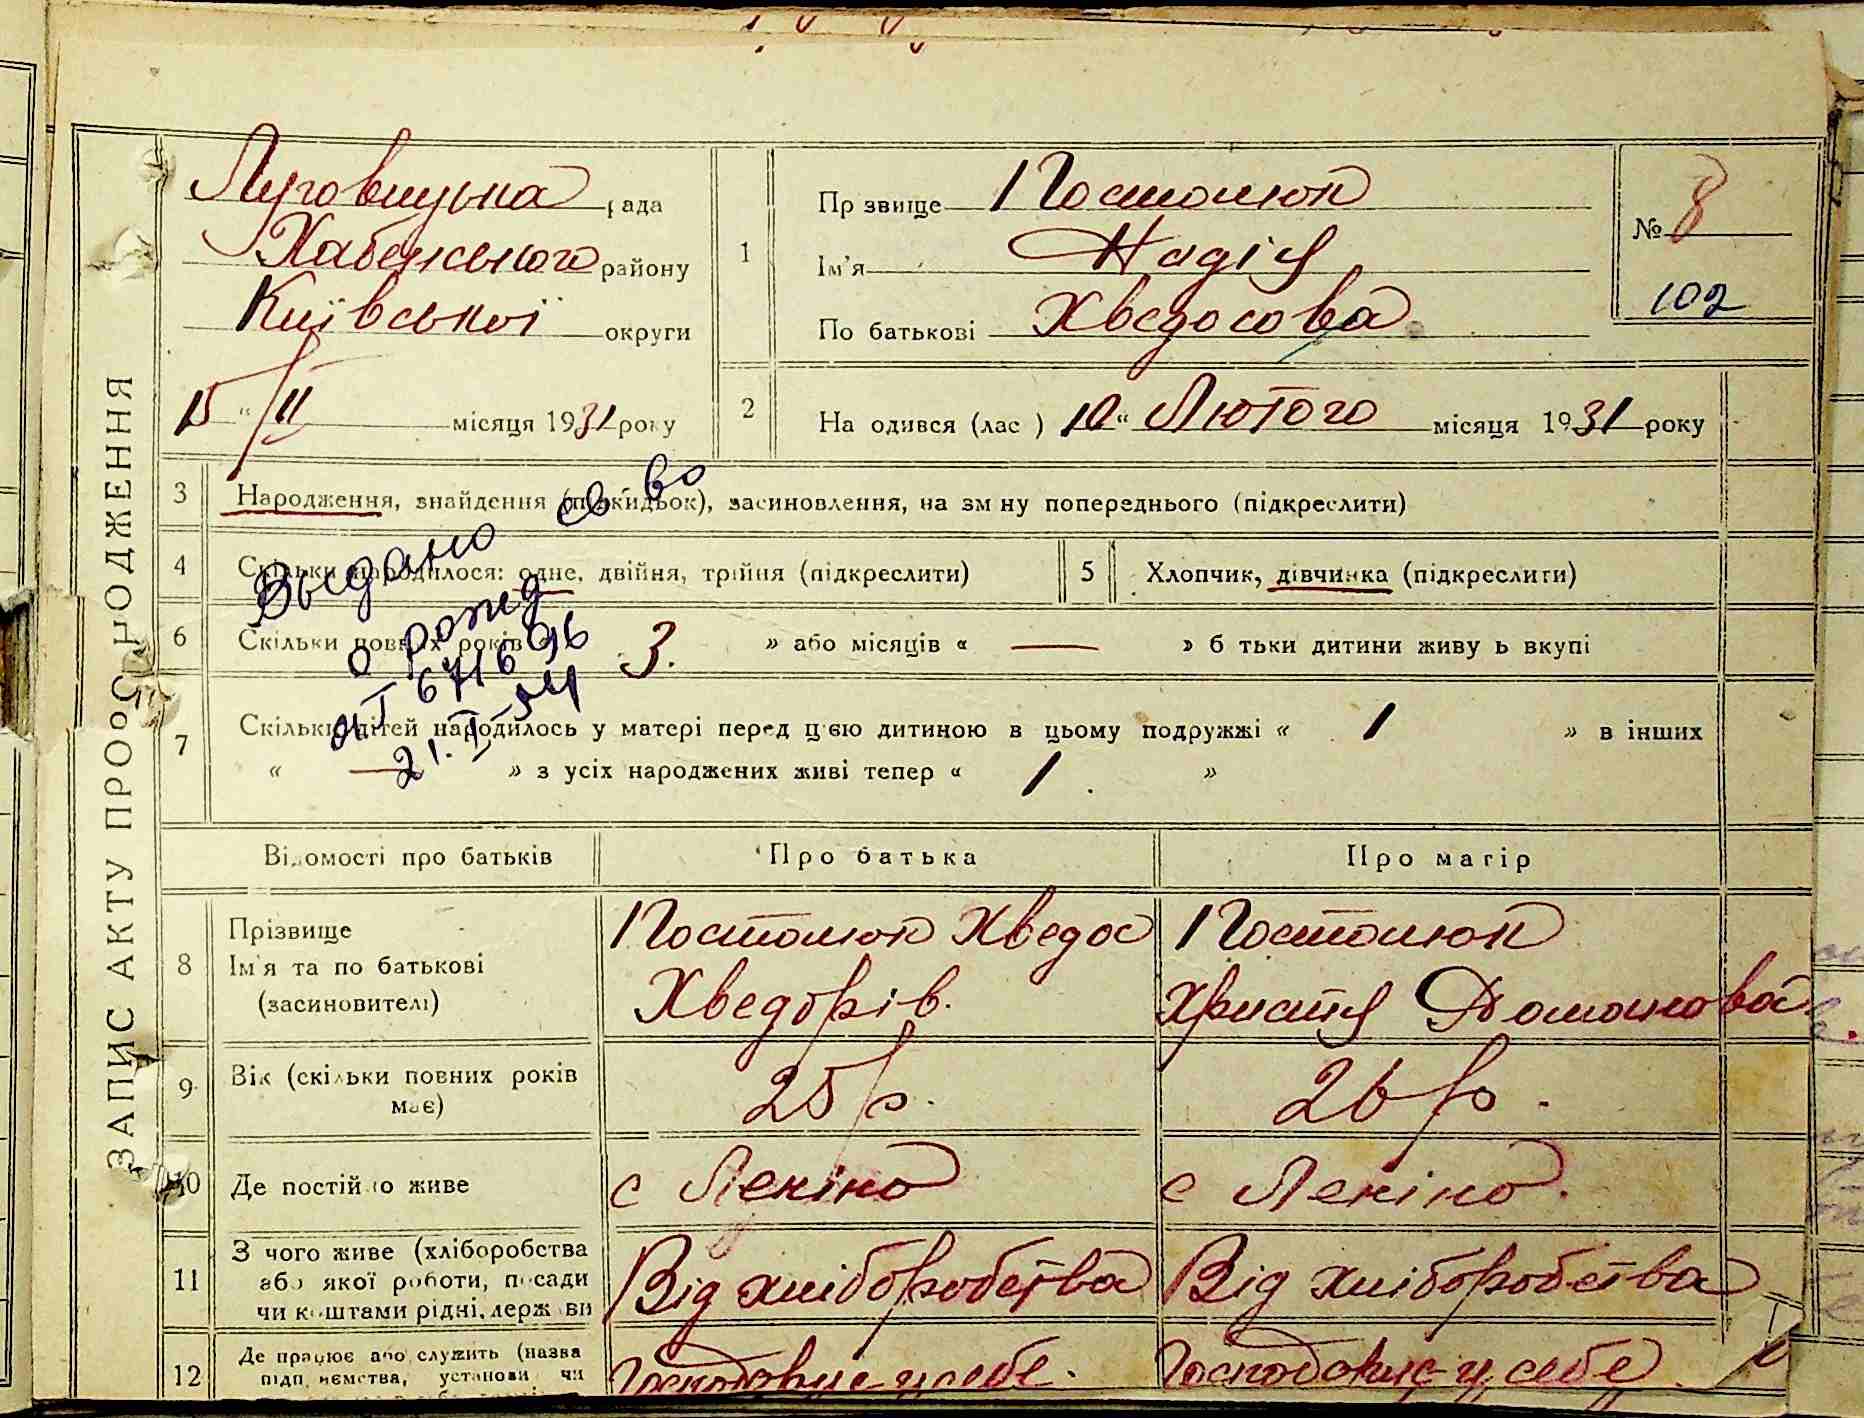 ЗАПИС АКТУ ПРО НАРОДЖЕННЯ
Луговицька рада
Хабенського району
Київської округи
15 "/II місяця 1931 року
1
Прізвище Постолюк
Ім'я Надія
По батькові Хведосова
№ 8
102
2
Народився (лася) 10 " Лютого місяця 1931 року
3 Народження, знайдення (підкидьок), засиновлення, на зміну попереднього (підкреслити)
4 Скільки народилося: одне, двійня, трійня (підкреслити)
5 Хлопчик, дівчинка (підкреслити)
6 Скільки повних років « 3. » або місяців « — » батьки дитини живуть вкупі
7 Скільки дітей народилось у матері перед цією дитиною в цьому подружжі « 1 » в інших
« — » з усіх народжених живі тепер « 1. »
Выдано св во
о рожд
671696
21.I-54
Відомості про батьків
Про батька
Про матір
8 Прізвище
Ім'я та по батькові
(засиновителі)
Постолюк Хведос
Хведорів.
Постолюк
Христя Домашова
9 Вік (скільки повних років
має)
25 р.
26 р.
10 Де постійно живе
с Лекіно
с Лекіно.
11 З чого живе (хліборобства
або якої роботи, посади
чи коштами рідні, держави
Від хліборобства
Від хліборобства
12 Де працює або служить (назва
підприємства, установи чи
у себе.
у себе